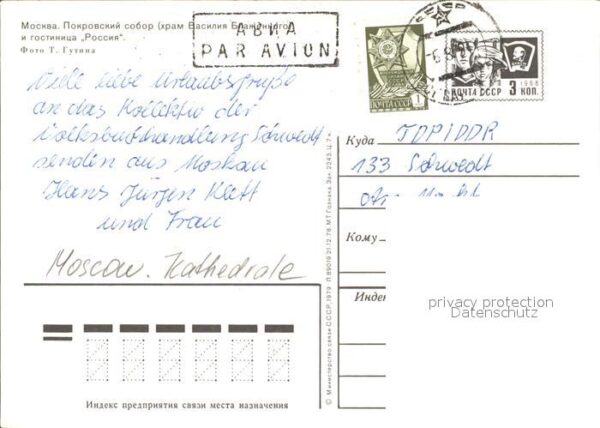 Москва. Покровский собор (храм Василия Блаженного)
и гостиница „Россия".
Фото Т. Гутина
АВИА
PAR AVION
СССР
1
ПОЧТА СССР 3 КОП.
Viele liebe Urlaubsgrüße
an das Kollektiv der
Volksbuchhandlung Schwedt
senden aus Moskau
Hans Jürgen Klett
und Frau
Moscow. Kathedrale
Куда TDP/DDR
133 Schwedt
Кому
Индек
privacy protection
Datenschutz
© Министерство связи СССР, 1979
МТ Гознака. Зак.
Индекс предприятия связи места назначения